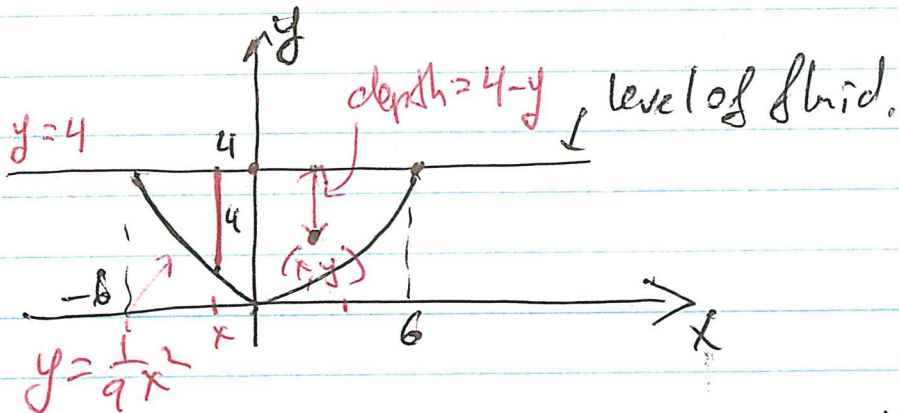 y
depth = 4-y
level of fluid.
y = 4
4
4
(x, y)
-6
x
6
x
y = 1/9 x²